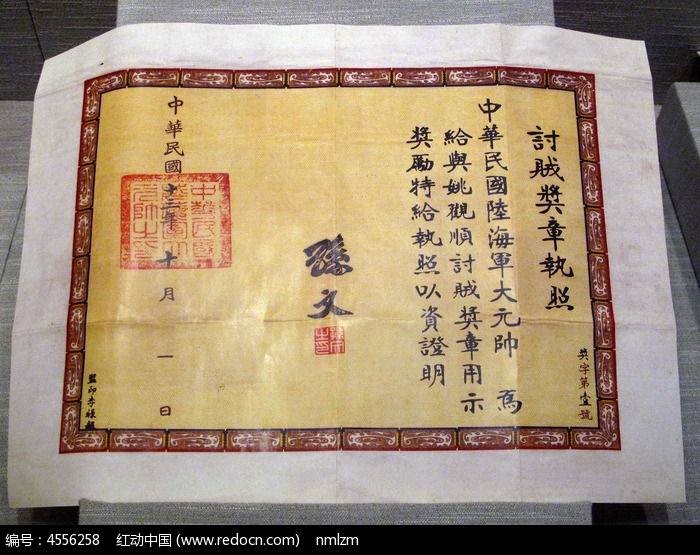 討賊獎章執照
中華民國陸海軍大元帥 爲
給與姚觀順討賊獎章用示
獎勵特給執照以資證明
獎字第壹號
孫文
孫文之印
中華民國十二年十月一日
編号：4556258 红动中国 (www.redocn.com) nmlzm